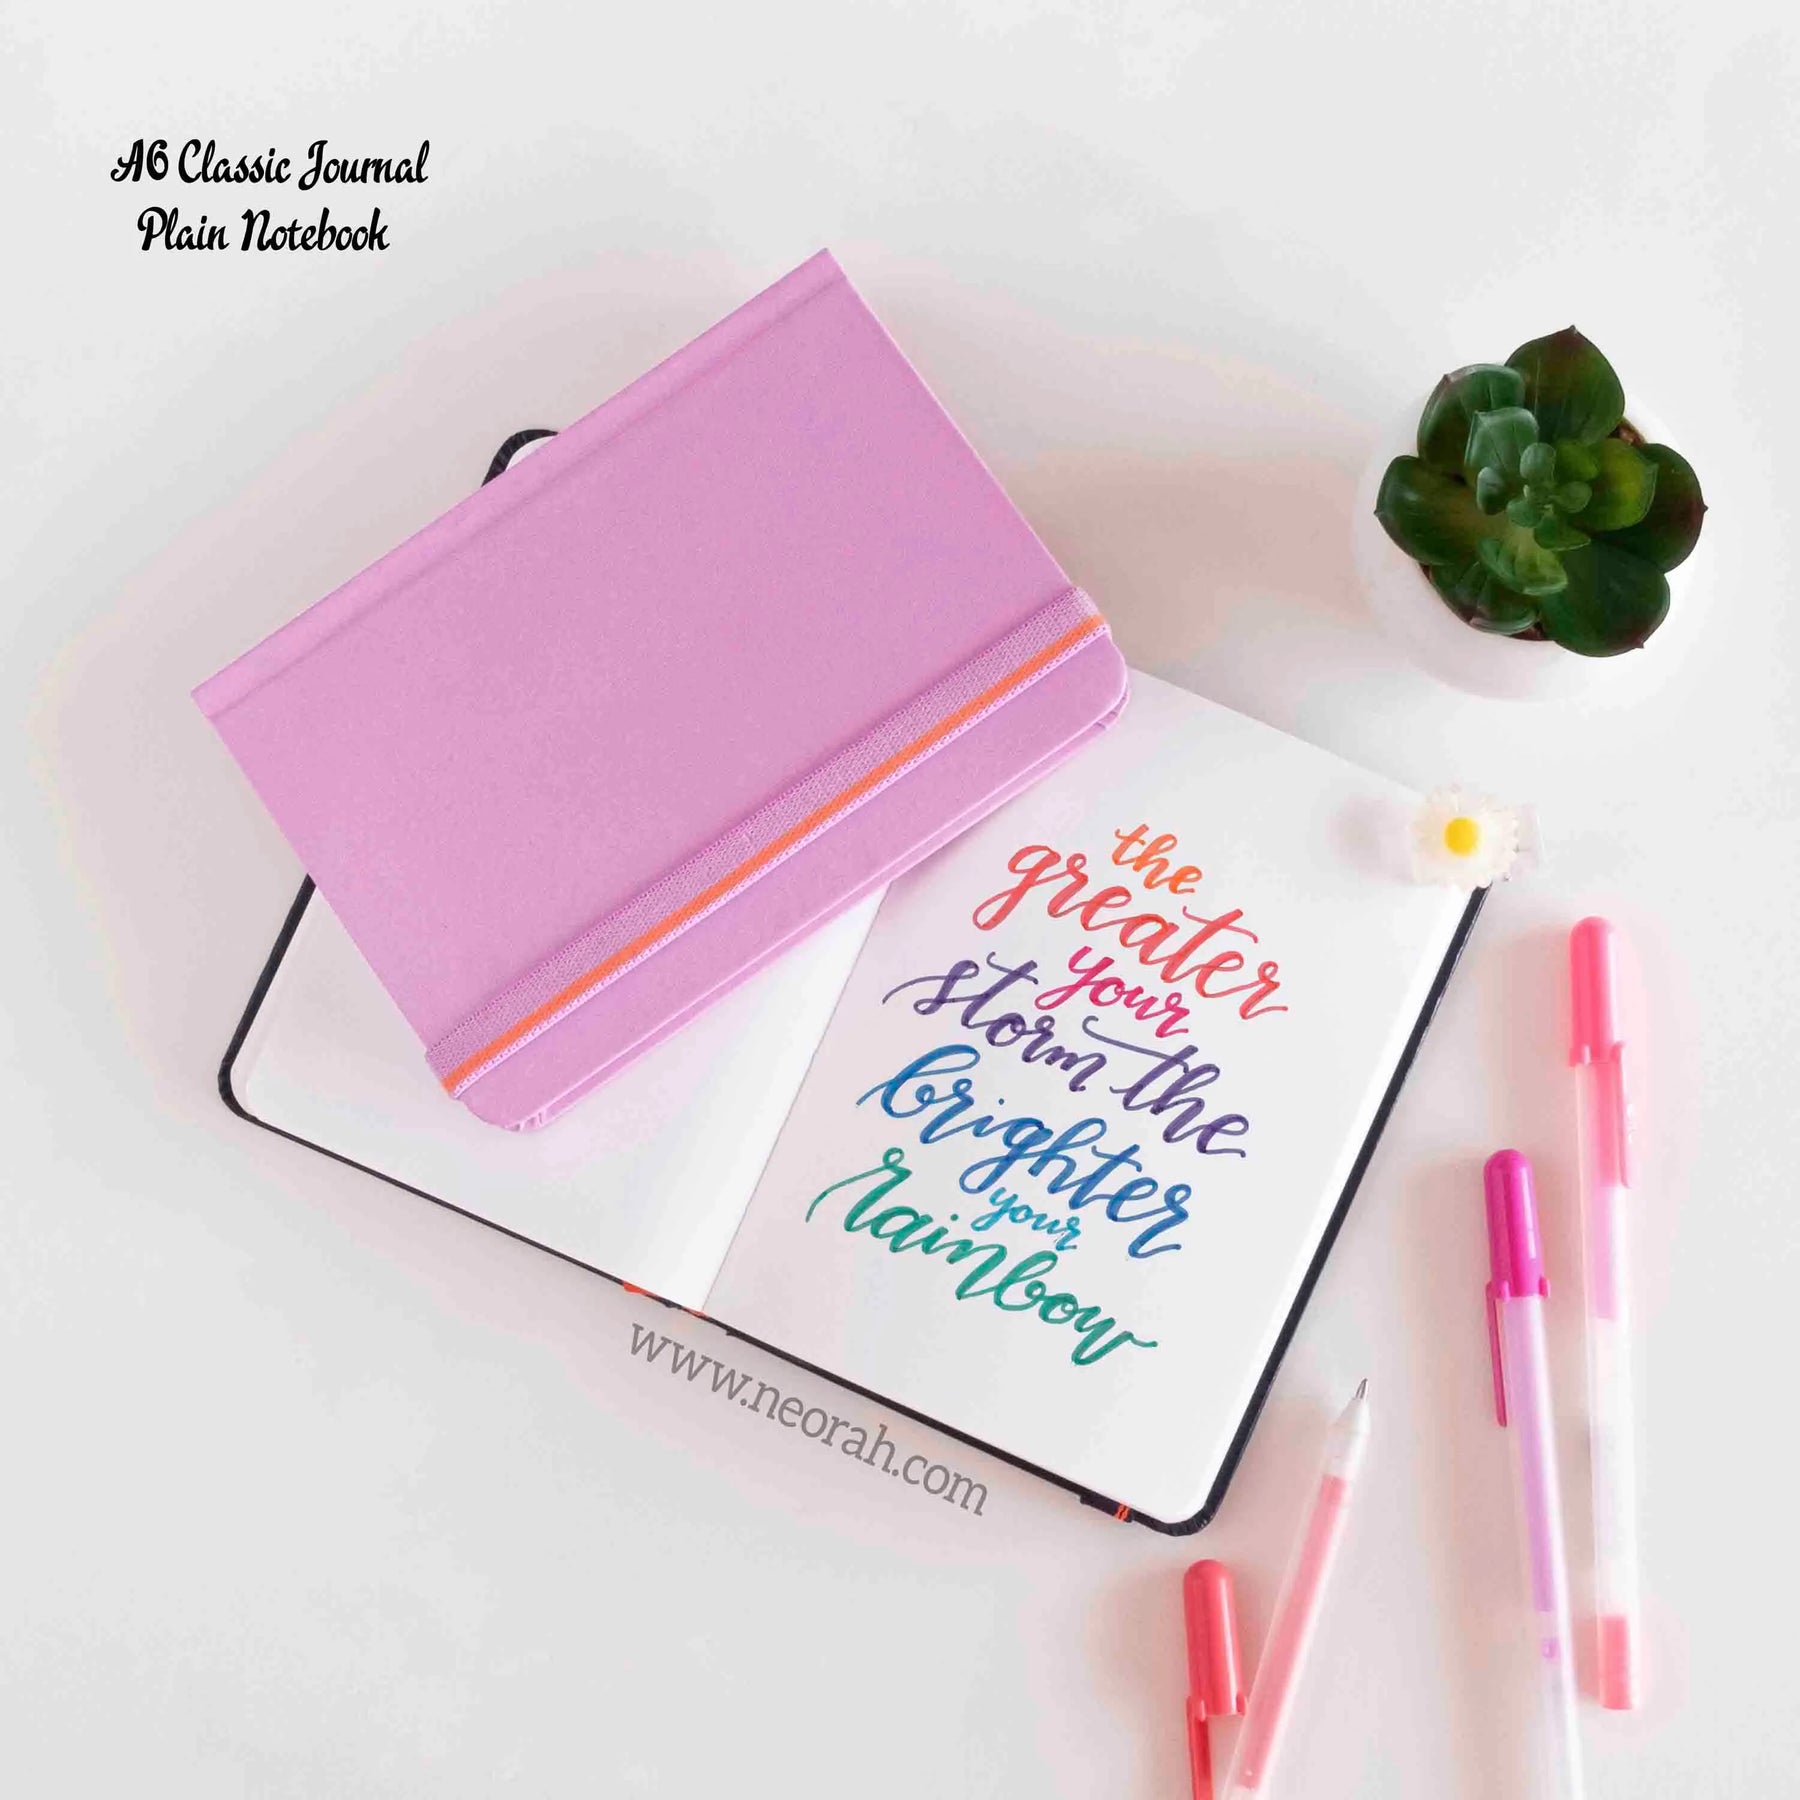 A6 Classic Journal
Plain Notebook
the
greater
your
storm the
brighter
your
rainbow
www.neorah.com